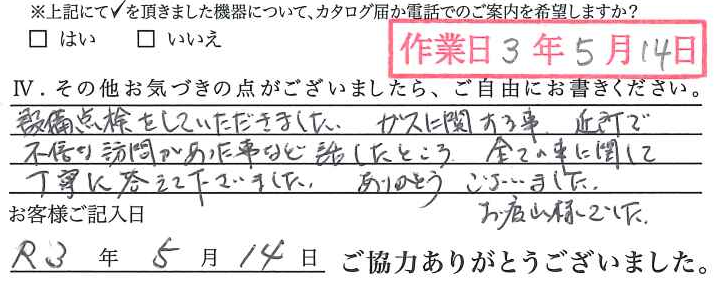 ※上記にて✓を頂きました機器について、カタログ届か電話でのご案内を希望しますか?
□ はい □ いいえ
作業日 3 年 5 月 14 日
Ⅳ．その他お気づきの点がございましたら、ご自由にお書きください。
設備点検をしていただきました。 ガスに関する事 近所で
不信な訪問があった事など話したところ 全ての事に関して
丁寧に答えて下さいました。 ありがとうございました。
お疲れ様でした。
お客様ご記入日
R3 年 5 月 14 日 ご協力ありがとうございました。